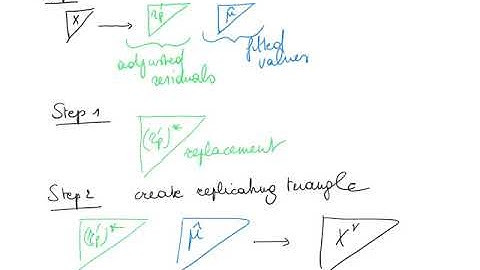 X r'p μ̂
adjusted residuals
fitted values
Step 1
(r'p)* replacement
Step 2 create replicating triangle
(r'p)* μ̂ X*